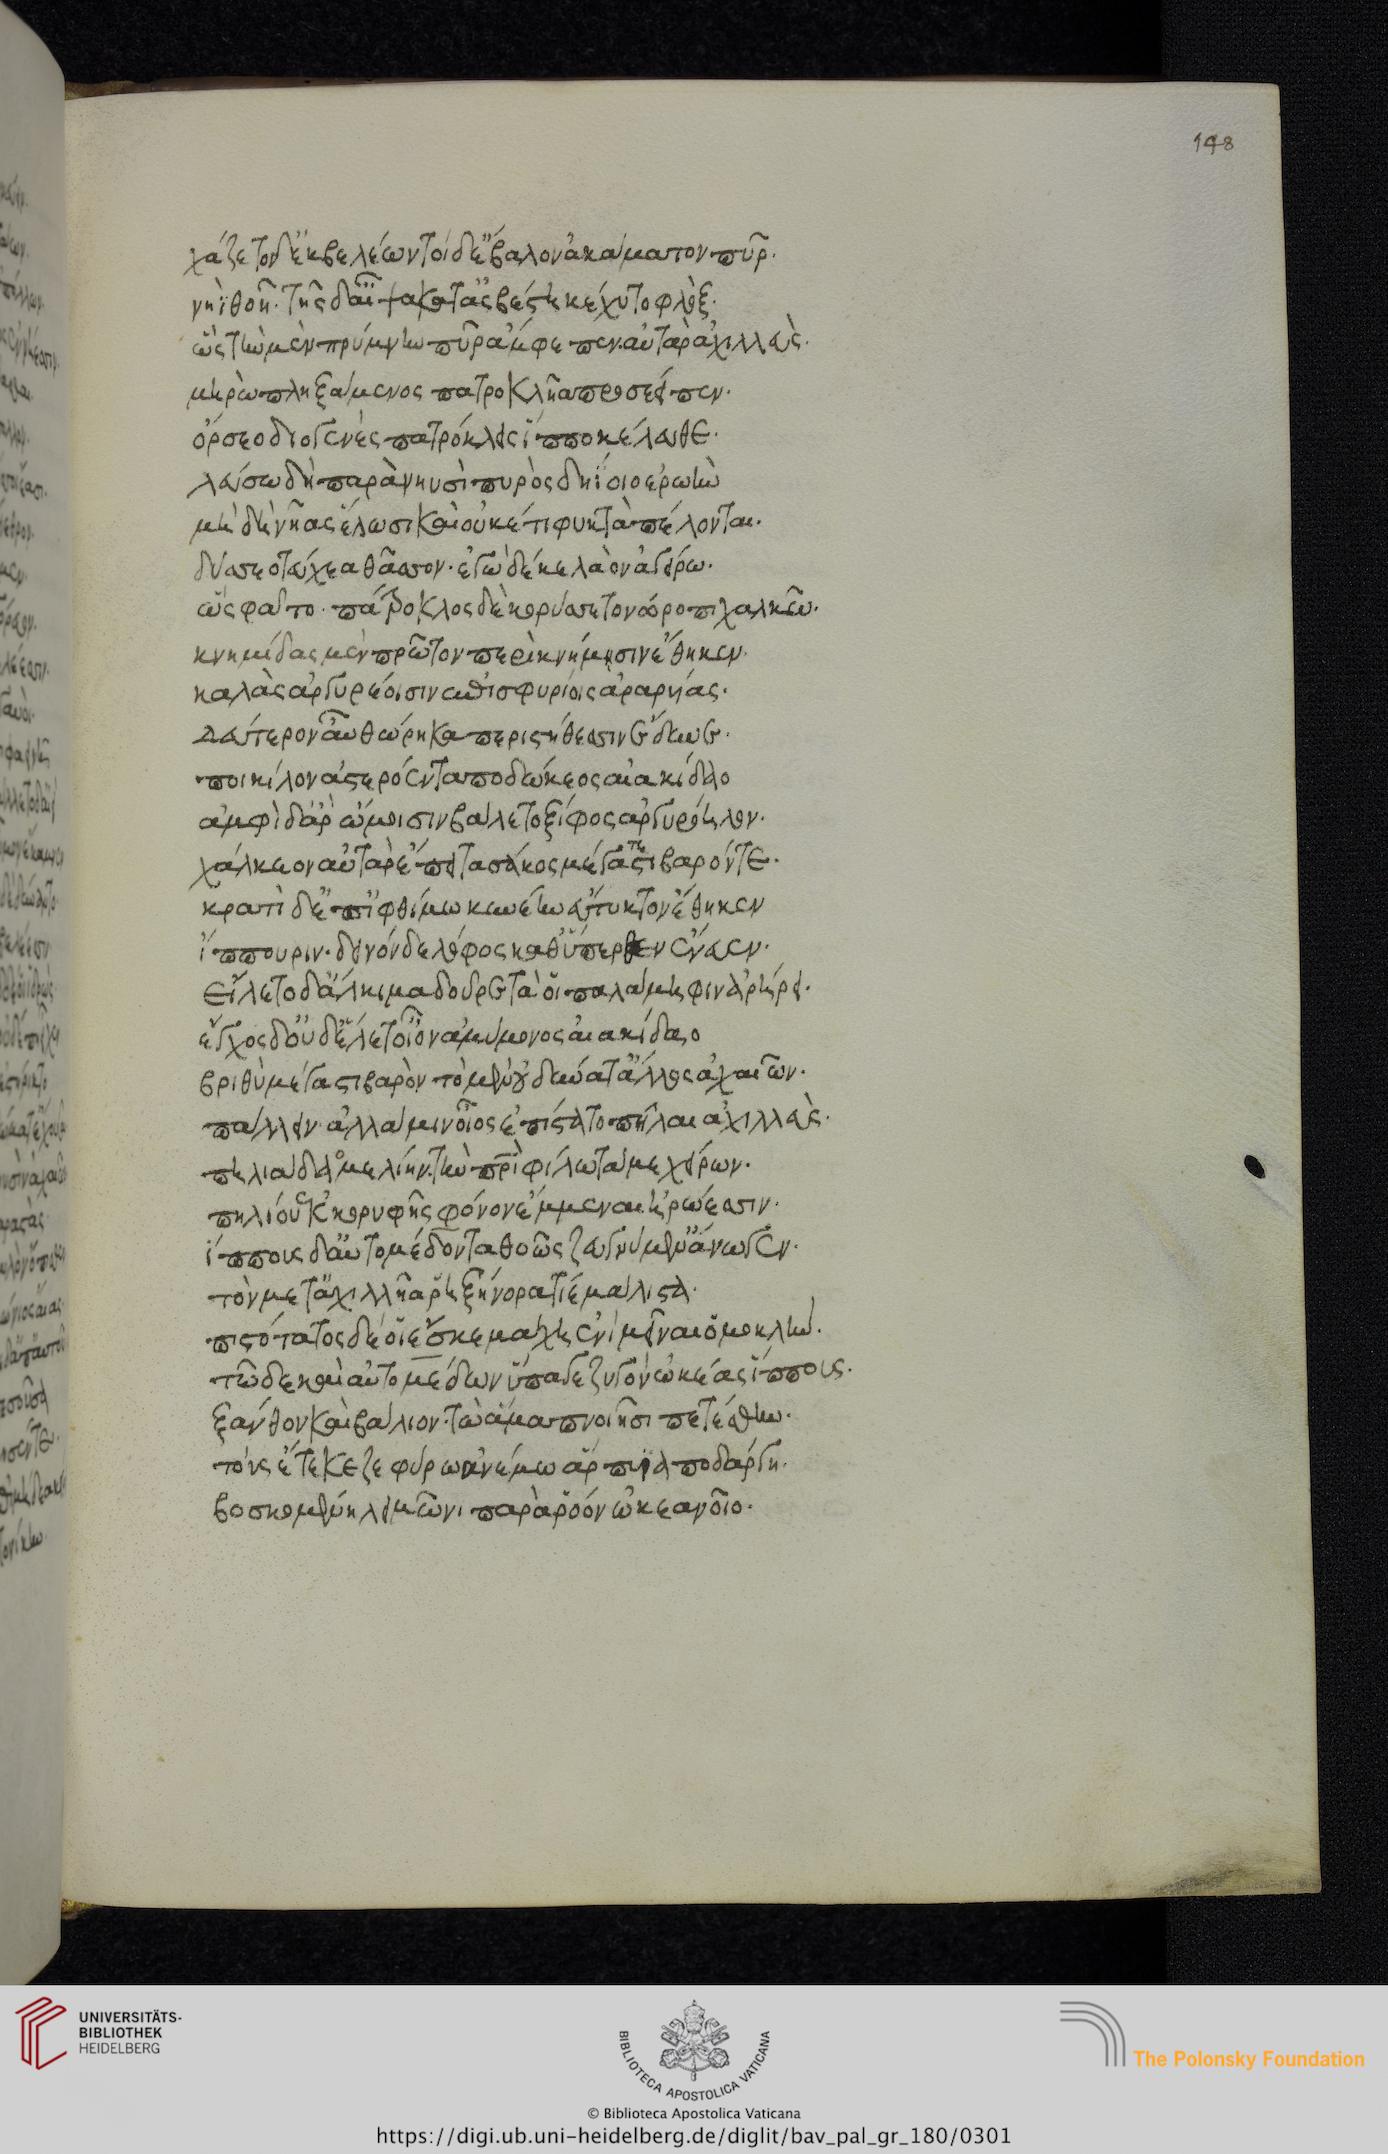 148
χάζετο δ' ἐκ βελέων τοὶ δ' ἔβαλον ἀκάματον πῦρ.
νηῒ θοῆ. τῆς δ' αἶψα κατ' ἀσβέστη κέχυτο φλόξ.
ὣς τὴν μὲν πρύμνην πῦρ ἄμφεπεν. αὐτὰρ ἀχιλλεὺς.
μηρὼ πληξάμενος πατροκλῆα προσέειπεν.
ὄρσεο διογενὲς πατρόκλεις ἱπποκέλευθε.
λεύσω δὴ παρὰ νηυσὶ πυρὸς δηΐοιο ἐρωὴν
μὴ δὴ νῆας ἕλωσι καὶ οὐκέτι φυκτὰ πέλονται.
δύσεο τεύχεα θᾶσσον. ἐγὼ δέ κε λαὸν ἀγείρω.
ὣς φάτο. πάτροκλος δὲ κορύσσετο νώροπι χαλκῶ.
κνημίδας μὲν πρῶτον περὶ κνήμησιν ἔθηκεν.
καλὰς ἀργυρέοισιν ἐπισφυρίοις ἀραρυίας.
δεύτερον αὖ θώρηκα περὶ στήθεσσιν ἔδυνε.
ποικίλον ἀστερόεντα ποδώκεος αἰακίδαο
ἀμφὶ δ' ἄρ' ὤμοισιν βάλετο ξίφος ἀργυρόηλον.
χάλκεον αὐτὰρ ἔπειτα σάκος μέγα τε στιβαρόν τε.
κρατὶ δ' ἐπ' ἰφθίμω κυνέην εὔτυκτον ἔθηκεν
ἵππουριν. δεινὸν δὲ λόφος καθύπερθεν ἔνευεν.
εἵλετο δ' ἄλκιμα δοῦρε τά οἱ παλάμηφιν ἀρήρει.
ἔγχος δ' οὐδ' ἕλετ' οἶον ἀμύμονος αἰακίδαο
βριθὺ μέγα στιβαρὸν τὸ μὲν οὐ δύνατ' ἄλλος ἀχαιῶν.
πάλλειν. ἀλλά μιν οἶος ἐπίστατο πῆλαι ἀχιλλεὺς.
πηλιάδα μελίην. τὴν πατρὶ φίλω τάμε χείρων.
πηλίου ἐκ κορυφῆς φόνον ἔμμεναι ἡρώεσσιν.
ἵππους δ' αὐτομέδοντα θοῶς ζευγνύμεν ἄνωγεν.
τὸν μετ' ἀχιλλῆα ῥηξήνορα τίε μάλιστα.
πιστότατος δέ οἱ ἔσκε μάχη ἐνὶ μεῖναι ὁμοκλήν.
τῶ δὲ καὶ αὐτομέδων ὕπαγε ζυγὸν ὠκέας ἵππους.
ξάνθον καὶ βαλίον. τὼ ἅμα πνοιῆσι πετέσθην.
τοὺς ἔτεκε ζεφύρω ἀνέμω ἅρπυια ποδάργη.
βοσκομένη λειμῶνι παρὰ ῥόον ὠκεανοῖο.
UNIVERSITÄTS-
BIBLIOTHEK
HEIDELBERG
BIBLIOTECA APOSTOLICA VATICANA
The Polonsky Foundation
© Biblioteca Apostolica Vaticana
https://digi.ub.uni-heidelberg.de/diglit/bav_pal_gr_180/0301